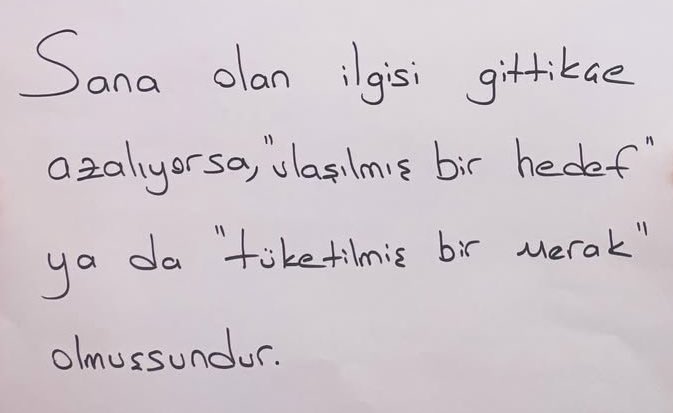 Sana olan ilgisi gittikçe
azalıyorsa, "ulaşılmış bir hedef"
ya da "tüketilmiş bir merak"
olmuşsundur.